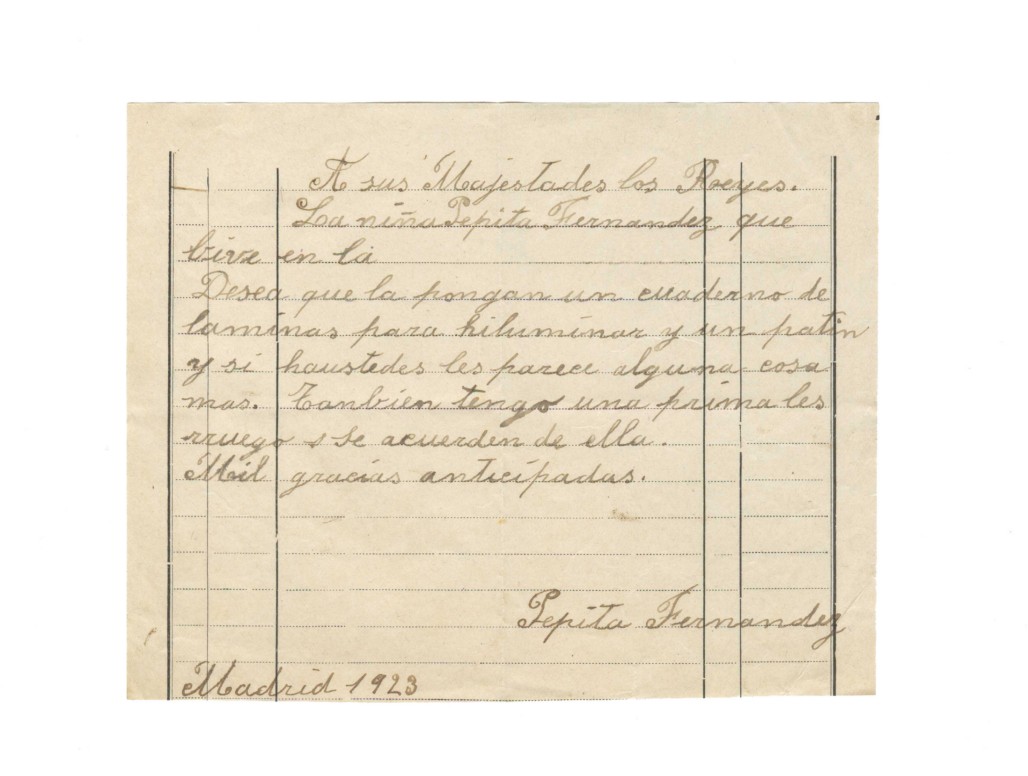 A sus Majestades los Reyes.
La niña Pepita Fernandez que
bive en la
Desea que la pongan un cuaderno de
laminas para hiluminar y un patin
y si haustedes les parece alguna cosa
mas. Tanbien tengo una prima les
rruego s se acuerden de ella.
Mil gracias anticipadas.
Pepita Fernandez
Madrid 1923